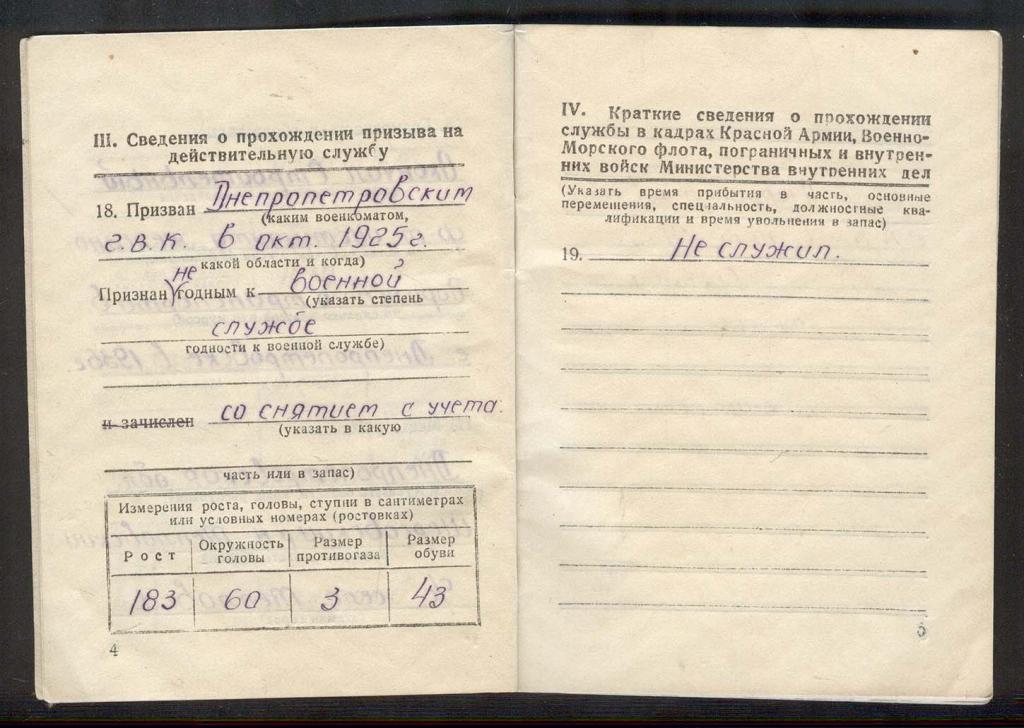 III. Сведения о прохождении призыва на
действительную службу
18. Призван Днепропетровским
(каким военкоматом,
г.в.к. в окт. 1925г.
какой области и когда)
не
Признан годным к военной
(указать степень
службе
годности к военной службе)
и зачислен со снятием с учета.
(указать в какую
часть или в запас)
Измерения роста, головы, ступни в сантиметрах
или условных номерах (ростовках)
Рост Окружность головы Размер противогаза Размер обуви
183 60 3 43
4
IV. Краткие сведения о прохождении
службы в кадрах Красной Армии, Военно-
Морского флота, пограничных и внутрен-
них войск Министерства внутренних дел
(Указать время прибытия в часть, основные
перемещения, специальность, должностные ква-
лификации и время увольнения в запас)
19. Не служил.
5